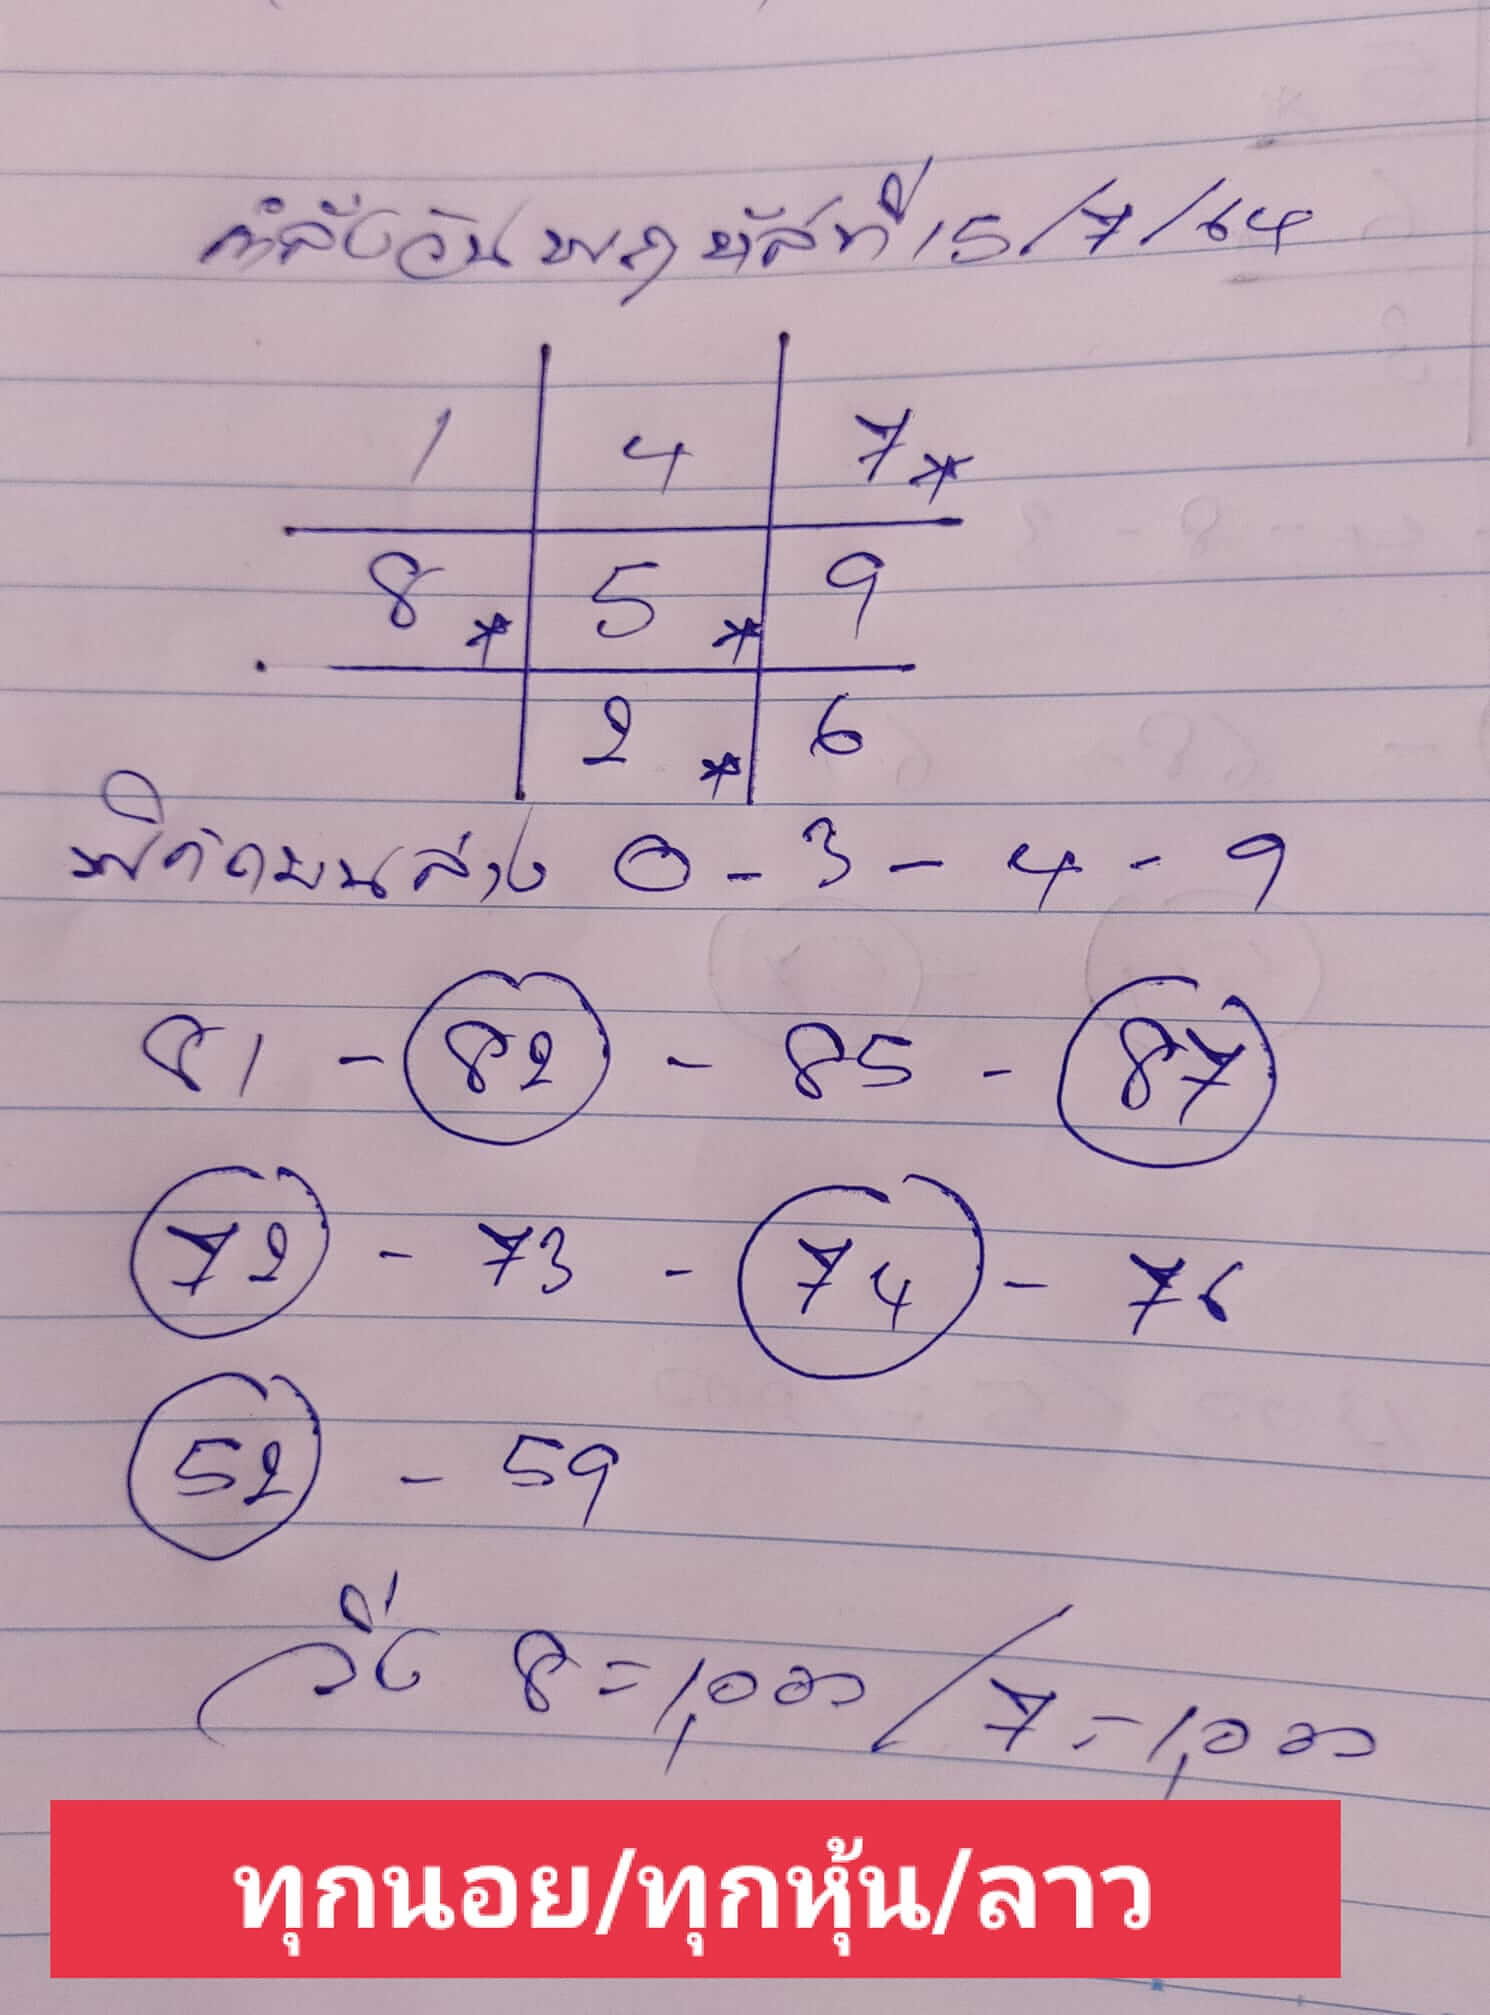 กำลังวันพฤหัสที่ 15/7/64
1 4 7*
8* 5* 9
2* 6
พิกัดบนล่าง 0 - 3 - 4 - 9
81 - 82 - 85 - 87
72 - 73 - 74 - 76
52 - 59
วิ่ง 8 = 1,000 / 7 = 1,000
ทุกนอย/ทุกหุ้น/ลาว